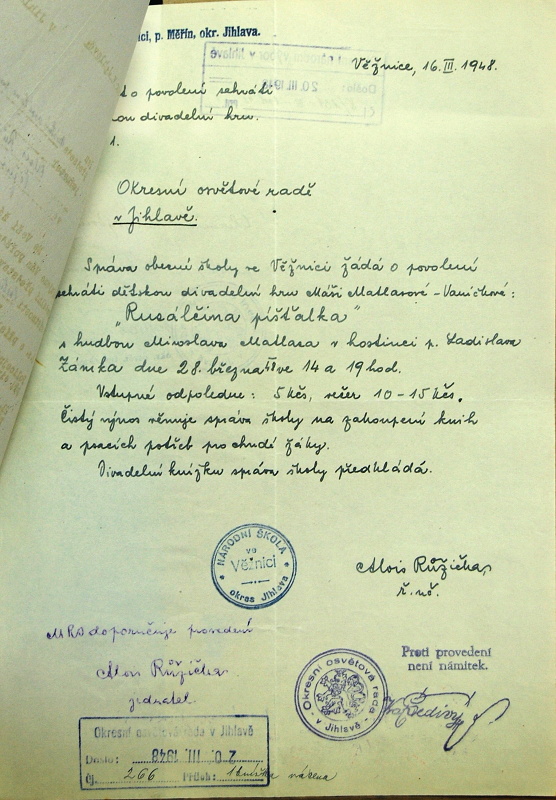 ici, p. Měřín, okr. Jihlava.
Věžnice, 16. III. 1948.
Došlo: 20. III. 1948
o povolení sehráti
divadelní hru.
1.
Okresní osvětové radě
v Jihlavě.
Správa obecné školy ve Věžnici žádá o povolení
sehráti dětskou divadelní hru Máši Matlasové-Vaníčkové:
„Rusálčina píšťalka"
s hudbou Miroslava Matlasa v hostinci p. Ladislava
Zámka dne 28. března 48 ve 14 a 19 hod.
Vstupné odpoledne: 5 Kčs, večer 10-15 Kčs.
Čistý výnos věnuje správa školy na zakoupení knih
a psacích potřeb pro chudé žáky.
Divadelní knížku správa školy předkládá.
NÁRODNÍ ŠKOLA
ve
Věžnici
okres Jihlava
Alois Růžička,
ř. uč.
MRO doporučuje provedení
Alois Růžička
jednatel.
Proti provedení
není námitek.
Okresní osvětová rada
v Jihlavě
Okresní osvětová rada v Jihlavě
Došlo: 20. III. 1948
Čj. 266 Příloh: 1 knížka vrácena